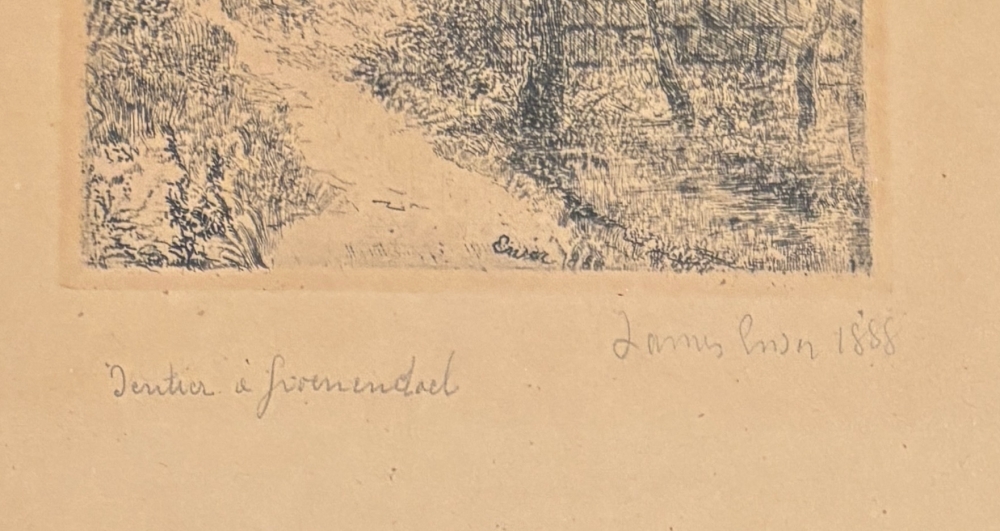 Ensor 1888
James Ensor 1888
Sentier à Groenendael